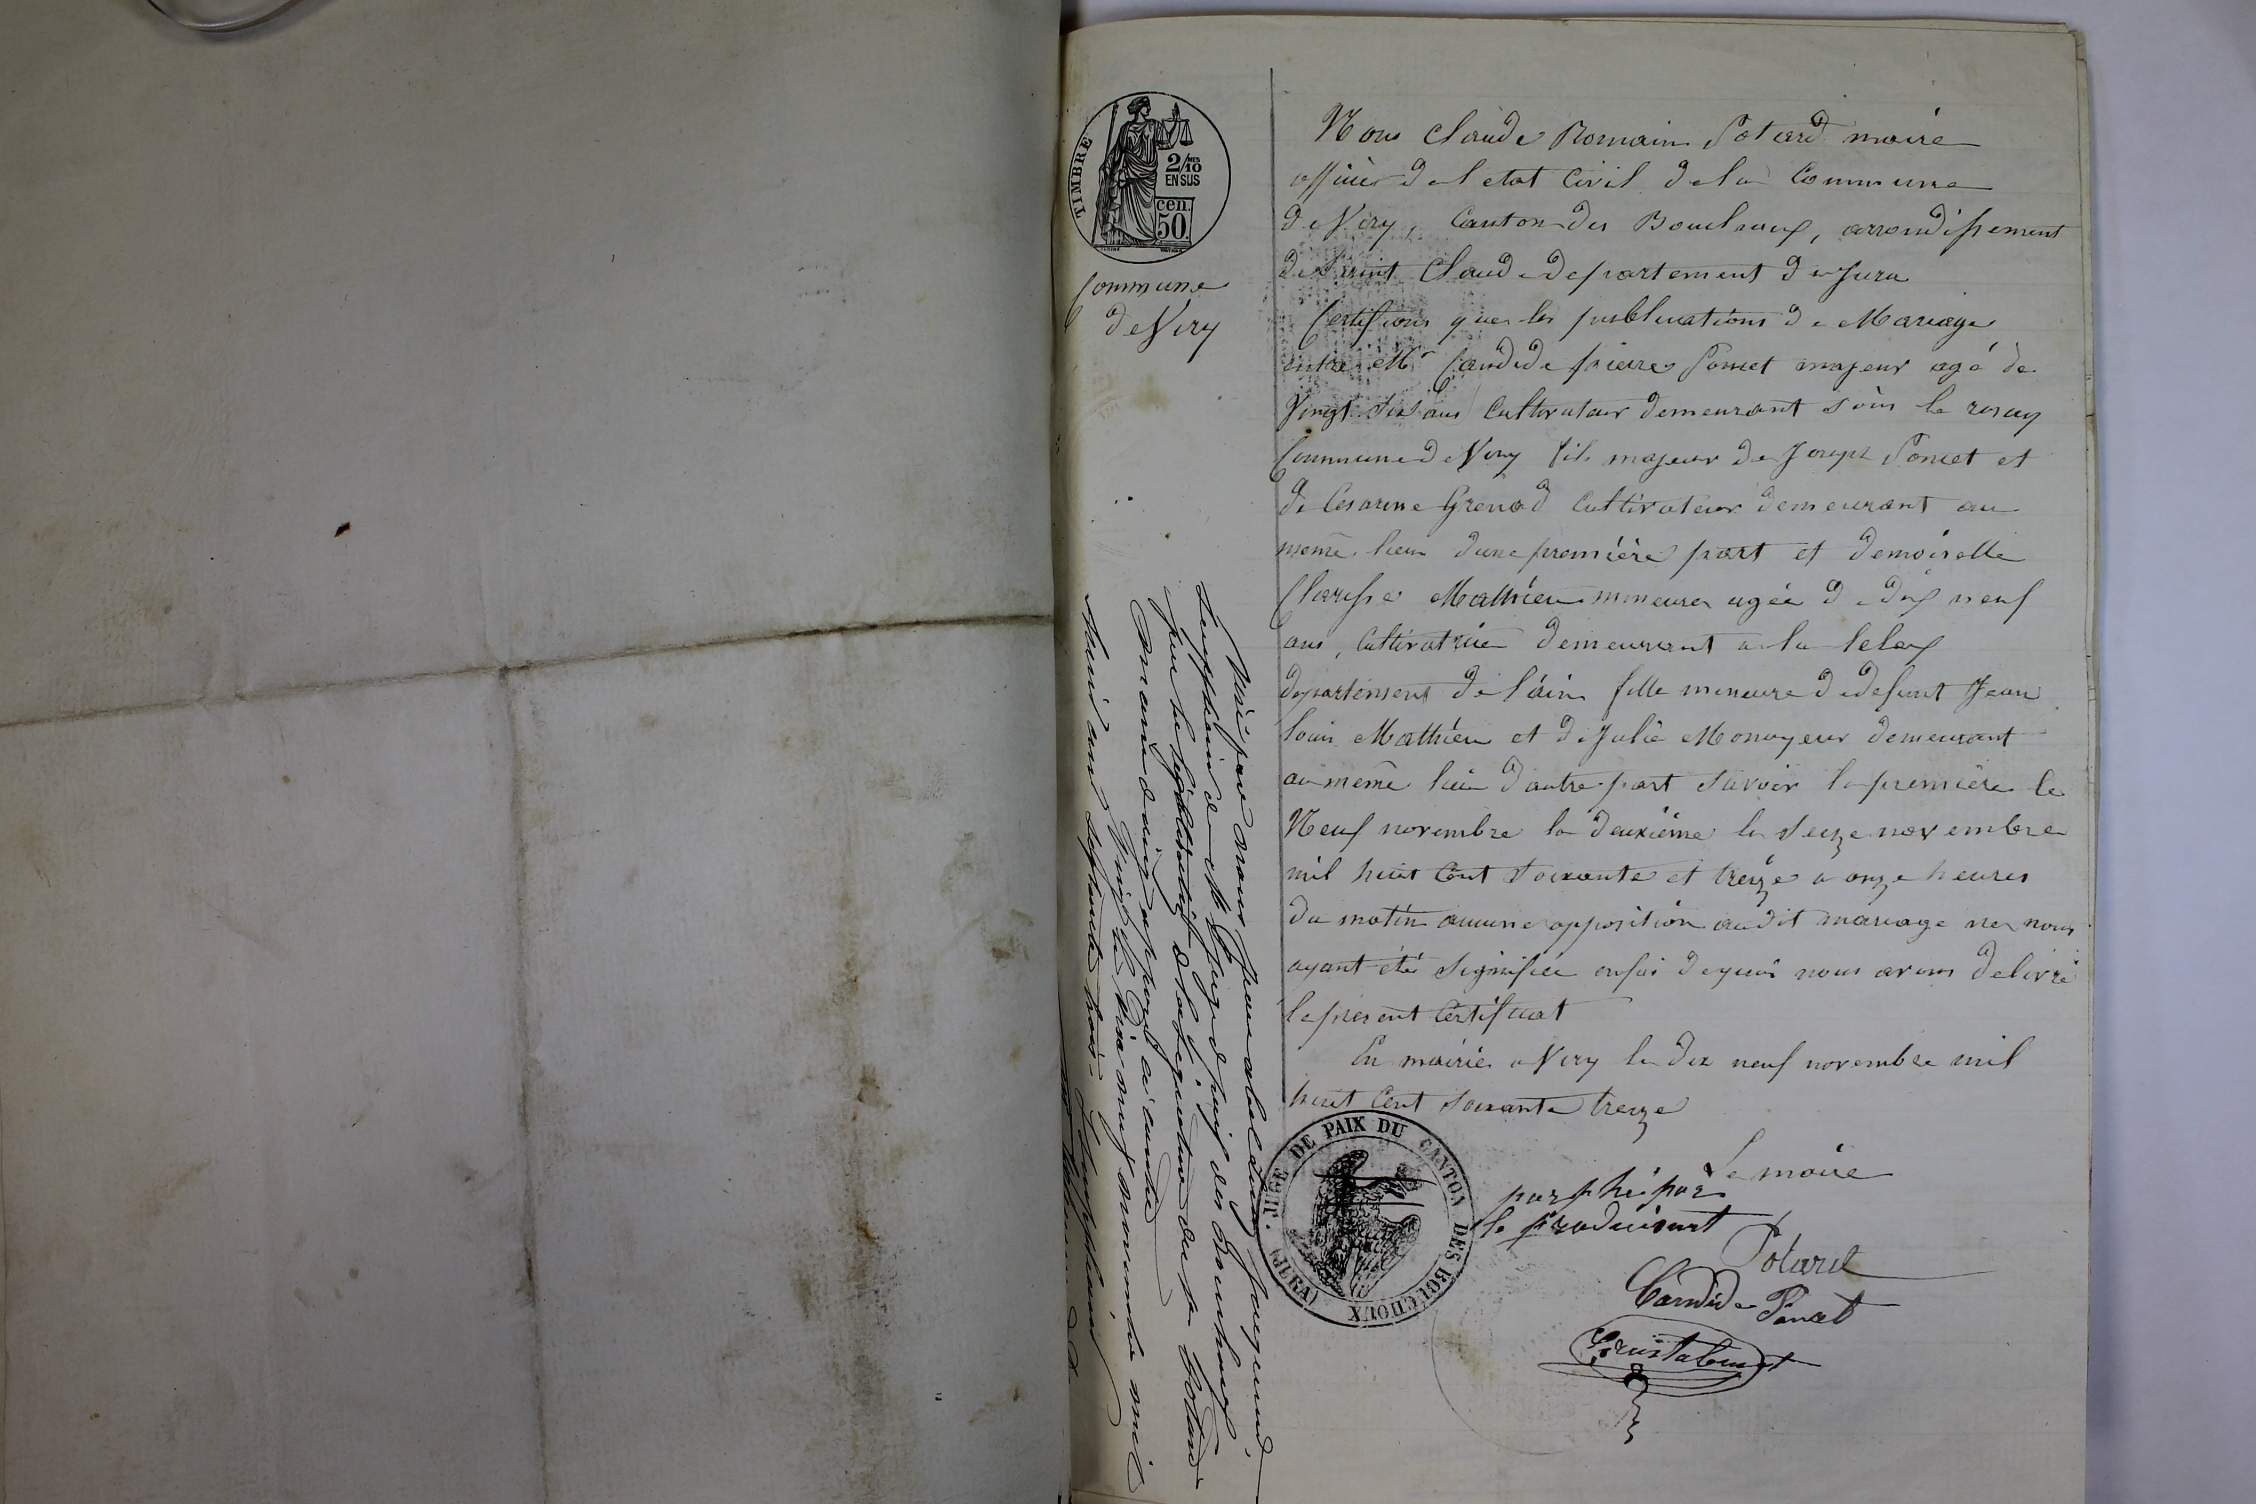 TIMBRE
2/10 MES
EN SUS
cen.
50.
Commune
de Viry
Nous Claude Romain Potard maire
officier de l etat Civil de la Commune
de Viry, Canton des Bouchoux, arrondissement
de Saint Claude departement du Jura
Certifions que les publications de Mariage
entre Mr Candide pierre Poncet majeur agé de
Vingt six ans Cultivateur demeurant sous le rosay
Commune de Viry fils majeur de Joseph Poncet et
de Cesarine Grenod Cultivateur demeurant au
même lieu d'une première part et demoiselle
Clarisse Mathieu mineure agée de dix neuf
ans, Cultivatrice demeurant a la lelex
departement de l'ain fille mineure de defunt Jean
louis Mathieu et de Julie Monnoyeur demeurant
au même lieu d'autre part savoir la première le
Neuf novembre la deuxième le seize novembre
mil huit Cent soixante et treize a onze heures
du matin aucune opposition audit mariage ne nous
ayant été signifiée enfoi dequoi nous avons delivré
le present Certificat
En mairie a Viry le dix neuf novembre mil
huit Cent soixante treize
Le maire
paraphé par
le producteur
Potard
Candide Poncet
J. JUGE DE PAIX DU CANTON DES BOUCHOUX (JURA)
Vu par nous
suppléant de M. le Juge de paix des Bouchoux
pour la législation de la signature du sr Potard
maire de Viry apposée ci contre
Viry le dix neuf novembre mil
huit cent soixante treize